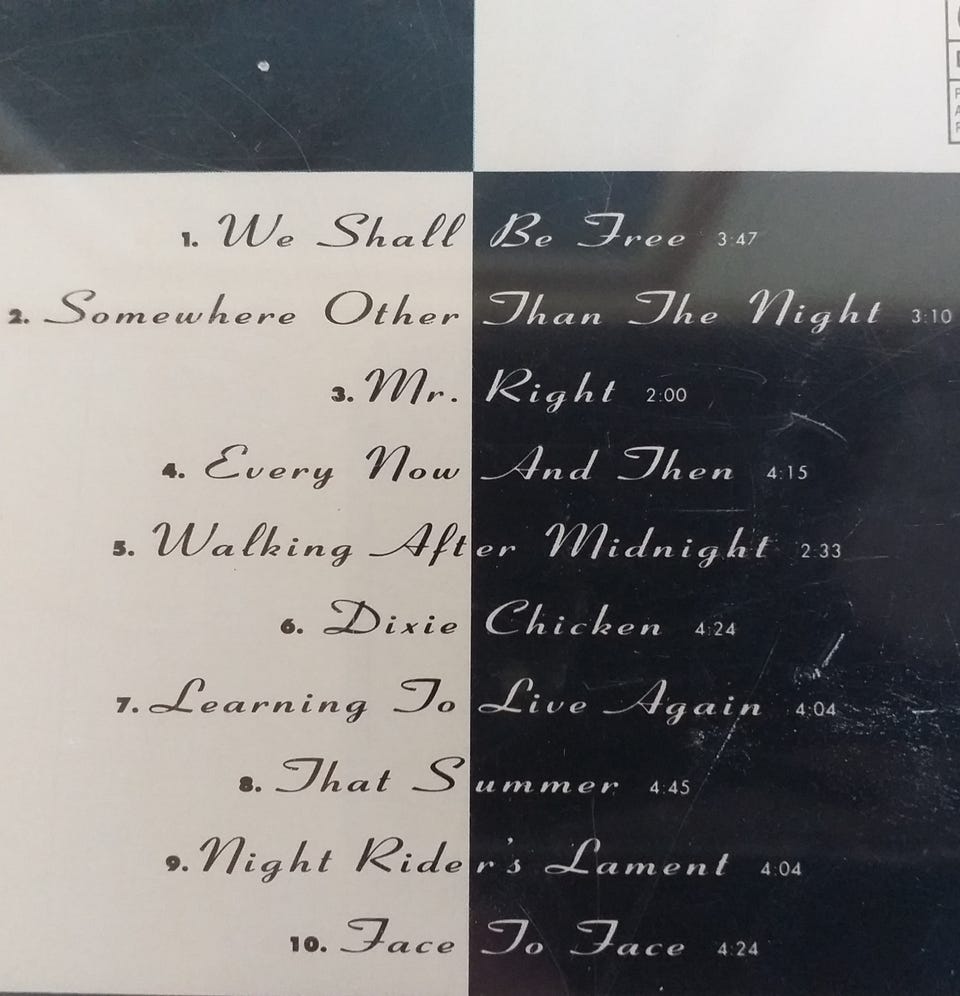 1. We Shall Be Free 3:47
2. Somewhere Other Than The Night 3:10
3. Mr. Right 2:00
4. Every Now And Then 4:15
5. Walking After Midnight 2:33
6. Dixie Chicken 4:24
7. Learning To Live Again 4:04
8. That Summer 4:45
9. Night Rider's Lament 4:04
10. Face To Face 4:24